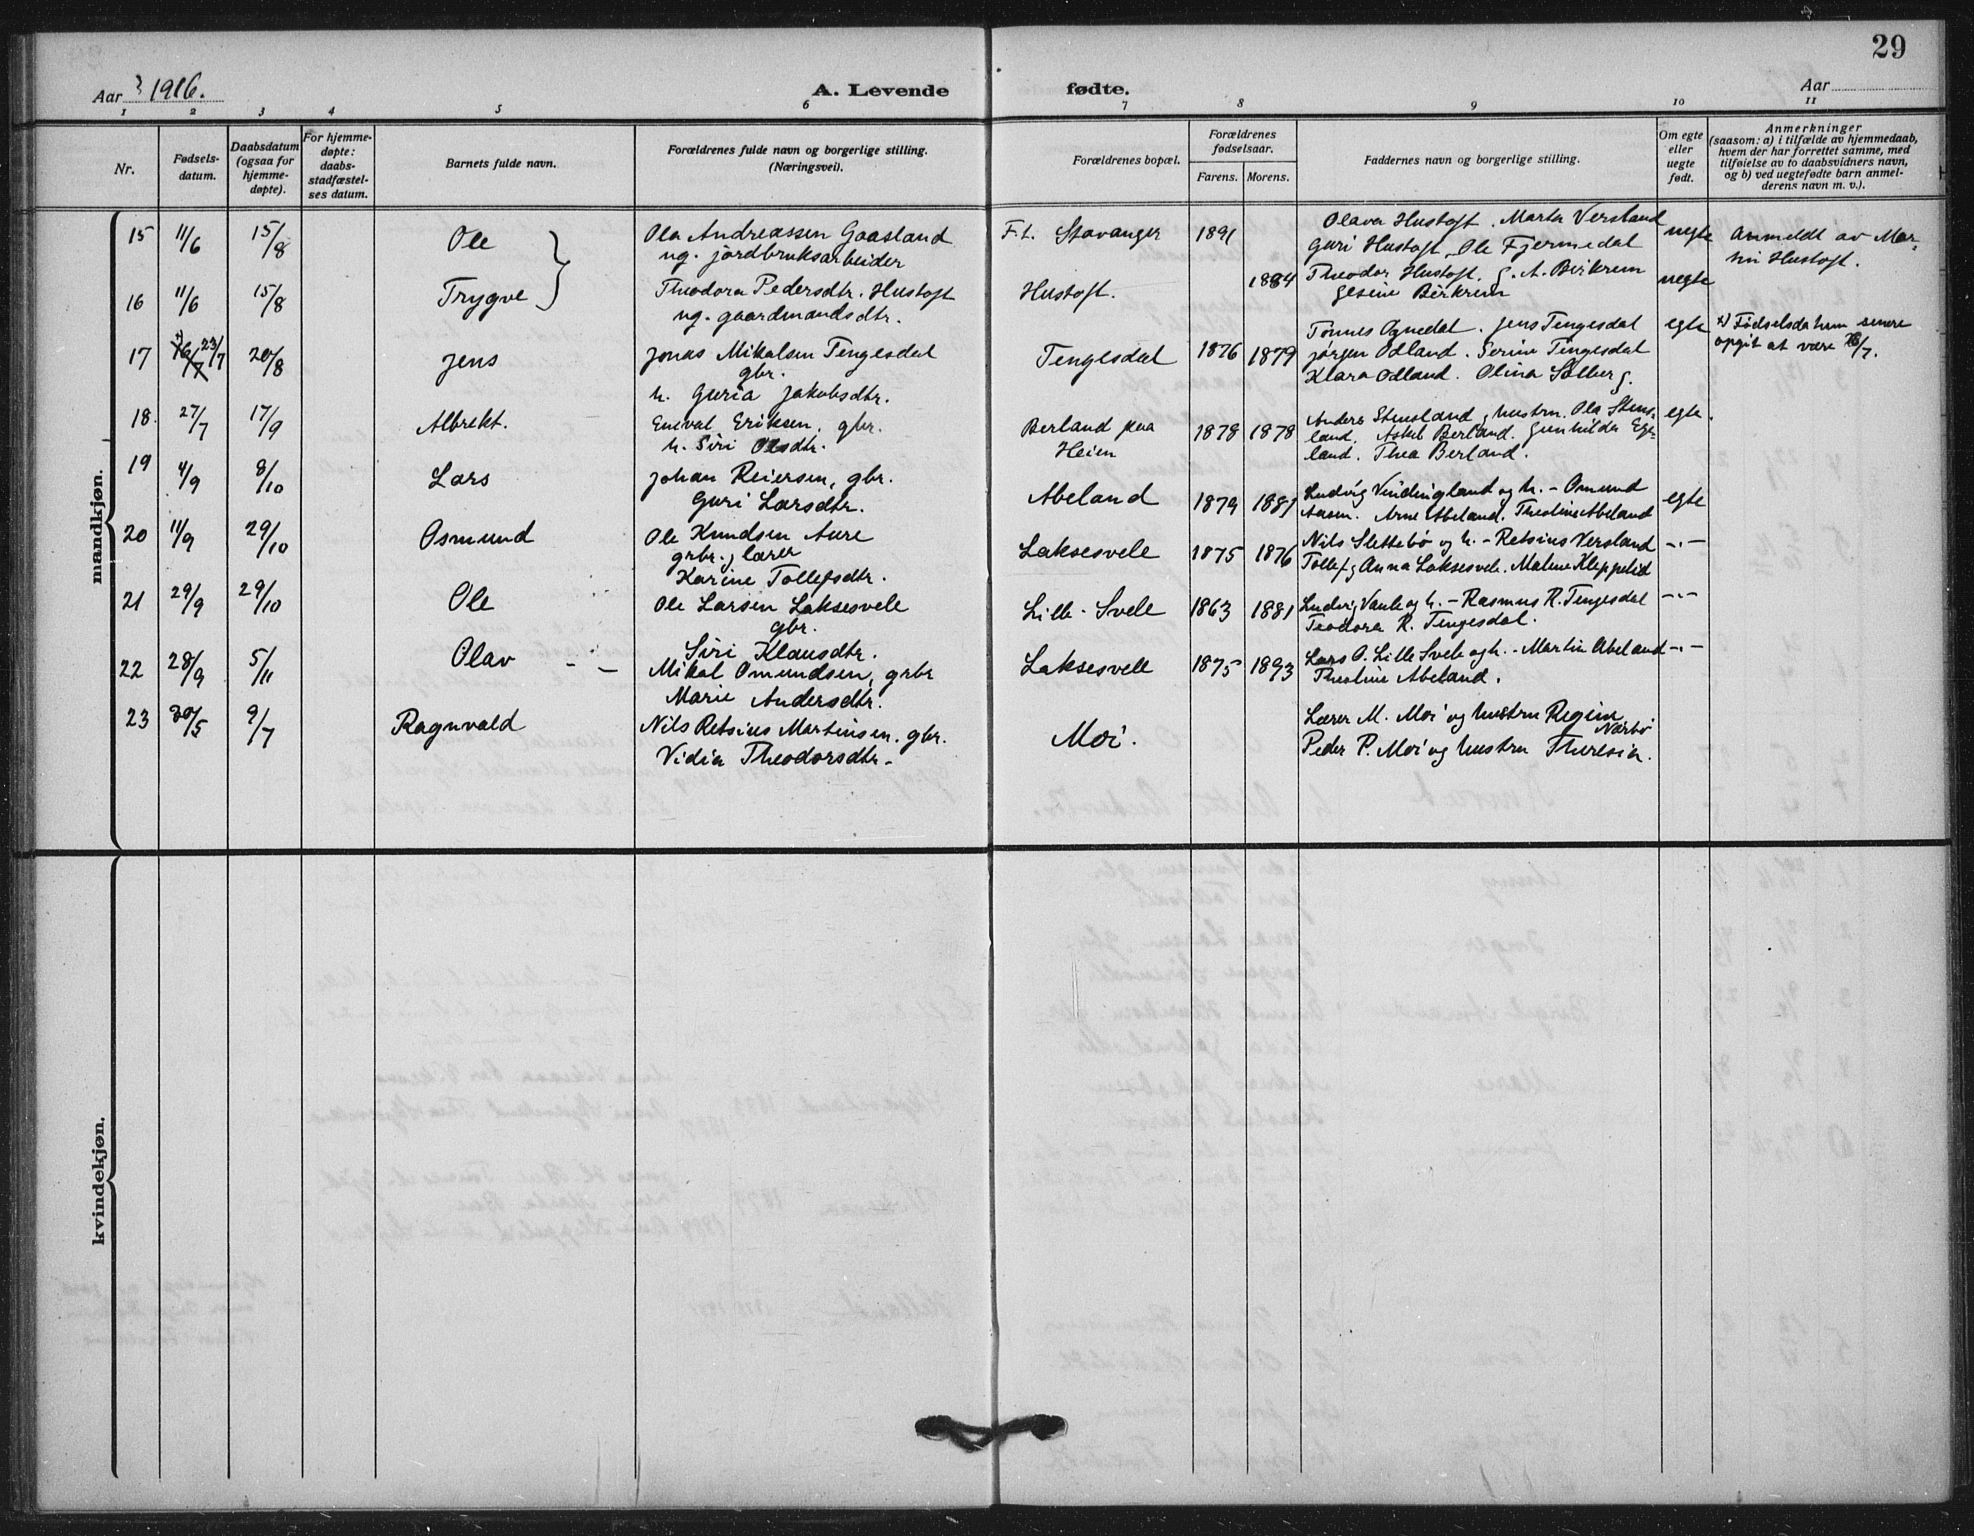 29
Aar 1916. A. Levende fødte. Aar
1 2 3 4 5 6 7 8 9 10 11
Nr.
Fødsels-
datum.
Daabsdatum
(ogsaa for
hjemme-
døpte).
For hjemme-
døpte:
daabs-
stadfæstel-
ses datum.
Barnets fulde navn.
Forældrenes fulde navn og borgerlige stilling.
(Næringsvei).
Forældrenes bopæl.
Forældrenes
fødselsaar.
Farens. Morens.
Faddernes navn og borgerlige stilling.
Om egte
eller
uegte
født.
Anmerkninger
(saasom: a) i tilfælde av hjemmedaab,
hvem der har forrettet samme, med
tilføielse av to daabsvidners navn,
og b) ved uegtefødte barn anmel-
derens navn m. v.).
mandkjøn.
15 11/6 15/8 Ole
Ola Andreassen Gaasland
ug. jordbruksarbeider
F.t. Stavanger 1891
Olava Hustoft. Marta Versland
Guri Hustoft, Ole Fjermedal
uegte
Anmeldt av Mar-
Hustoft.
16 11/6 15/8 Trygve
Theodora Pedersdtr. Hustoft
ug. gaardmandsdtr.
Hustoft. 1884
Theodor Hustoft. G. A. Birkrem
Gesine Birkrem
uegte
17 23/7 20/8 Jens
Jonas Mikalsen Tengesdal
gbr.
h. Guria Jakobsdtr.
Tengesdal 1876 1879
Tønnes Ognedal. Jens Tengesdal
Jørgen Odland. Serine Tengesdal
Klara Odland. Olina Solberg.
egte
x) Fødselsdatum senere
opgit at være 16/7.
18. 27/7 17/9 Albrekt.
Eneval Eriksen, gbr.
h. Siri Olsdtr.
Berland paa
Heien
1878 1878
Anders Stensland g hustru. Ola Stens-
land. Askel Berland. Gunhilda Ege-
land. Thea Berland.
egte.
19 4/9 8/10 Lars
Johan Reiersen, gbr.
Guri Larsdtr.
Abeland 1879 1881
Ludvig Vindingland og h. - Omund
Aasen. Arne Abeland. Theoline Abeland
egte
20 11/9 29/10 Osmund
Ole Knudsen Aure
grbr. g lærer
Karine Tollefsdtr.
Laksesvele 1875 1876
Nils Slettebø og h. - Retsius Versland
Tollef g Anna Laksesvele. Malene Kleppelid
-"-
21 29/9 29/10 Ole
Ole Larsen Laksesvele
gbr.
Siri Klausdtr.
Lille-Svele 1863 1881
Ludvig Vaule og h. - Rasmus R. Tengesdal
Teodora R. Tengesdal.
-"-
22 28/9 5/11 Olav
Mikal Omundsen, grbr
Marie Andersdtr.
Laksesvele 1875 1893
Lars O. Lille Svele og h. - Martin Abeland
Theoline Abeland.
-"-
23 30/5 9/7 Ragnvald
Nils Retsius Martinsen. gbr.
Vidia Theodorsdtr.
Moi.
Lærer M. Moi og hustru Regine
Nærbø.
Peder P. Moi og hustru Theresia.
kvindekjøn.